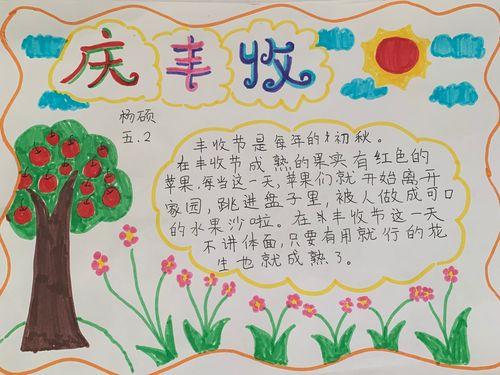 庆丰收
杨硕
五.2
丰收节是每年的初秋。
在丰收节成熟的果实有红色的
苹果,每当这一天,苹果们就开始离开
家园,跳进盘子里,被人做成可口
的水果沙啦。在丰收节这一天
不讲体面,只要有用就行的花
生也就成熟了。